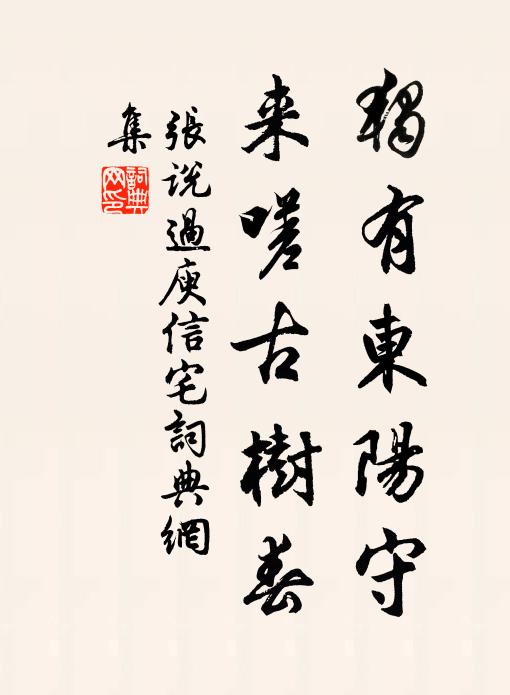 獨有東陽守
来嗟古樹春
張説過庾信宅詞典網
集
詞典
网印